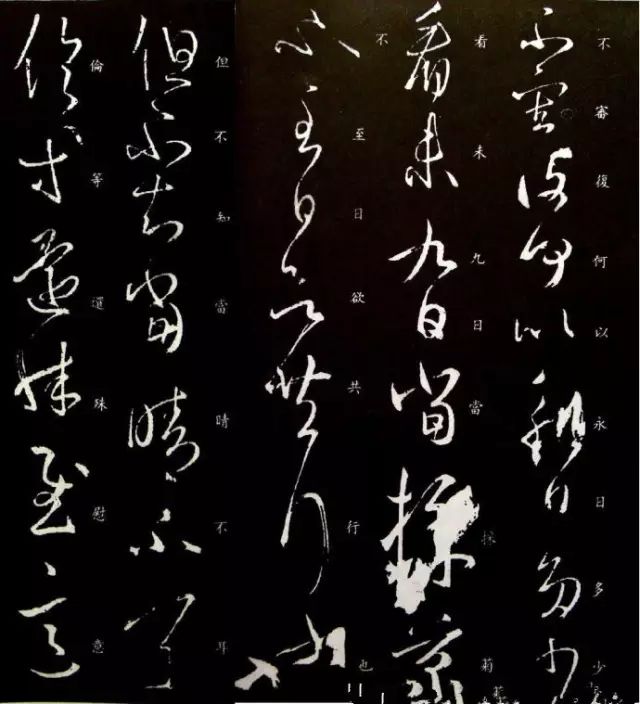 不審復何以永日多少
看未九日當採菊
不至日欲共行也
但不知當晴不耳
倫等還殊慰意